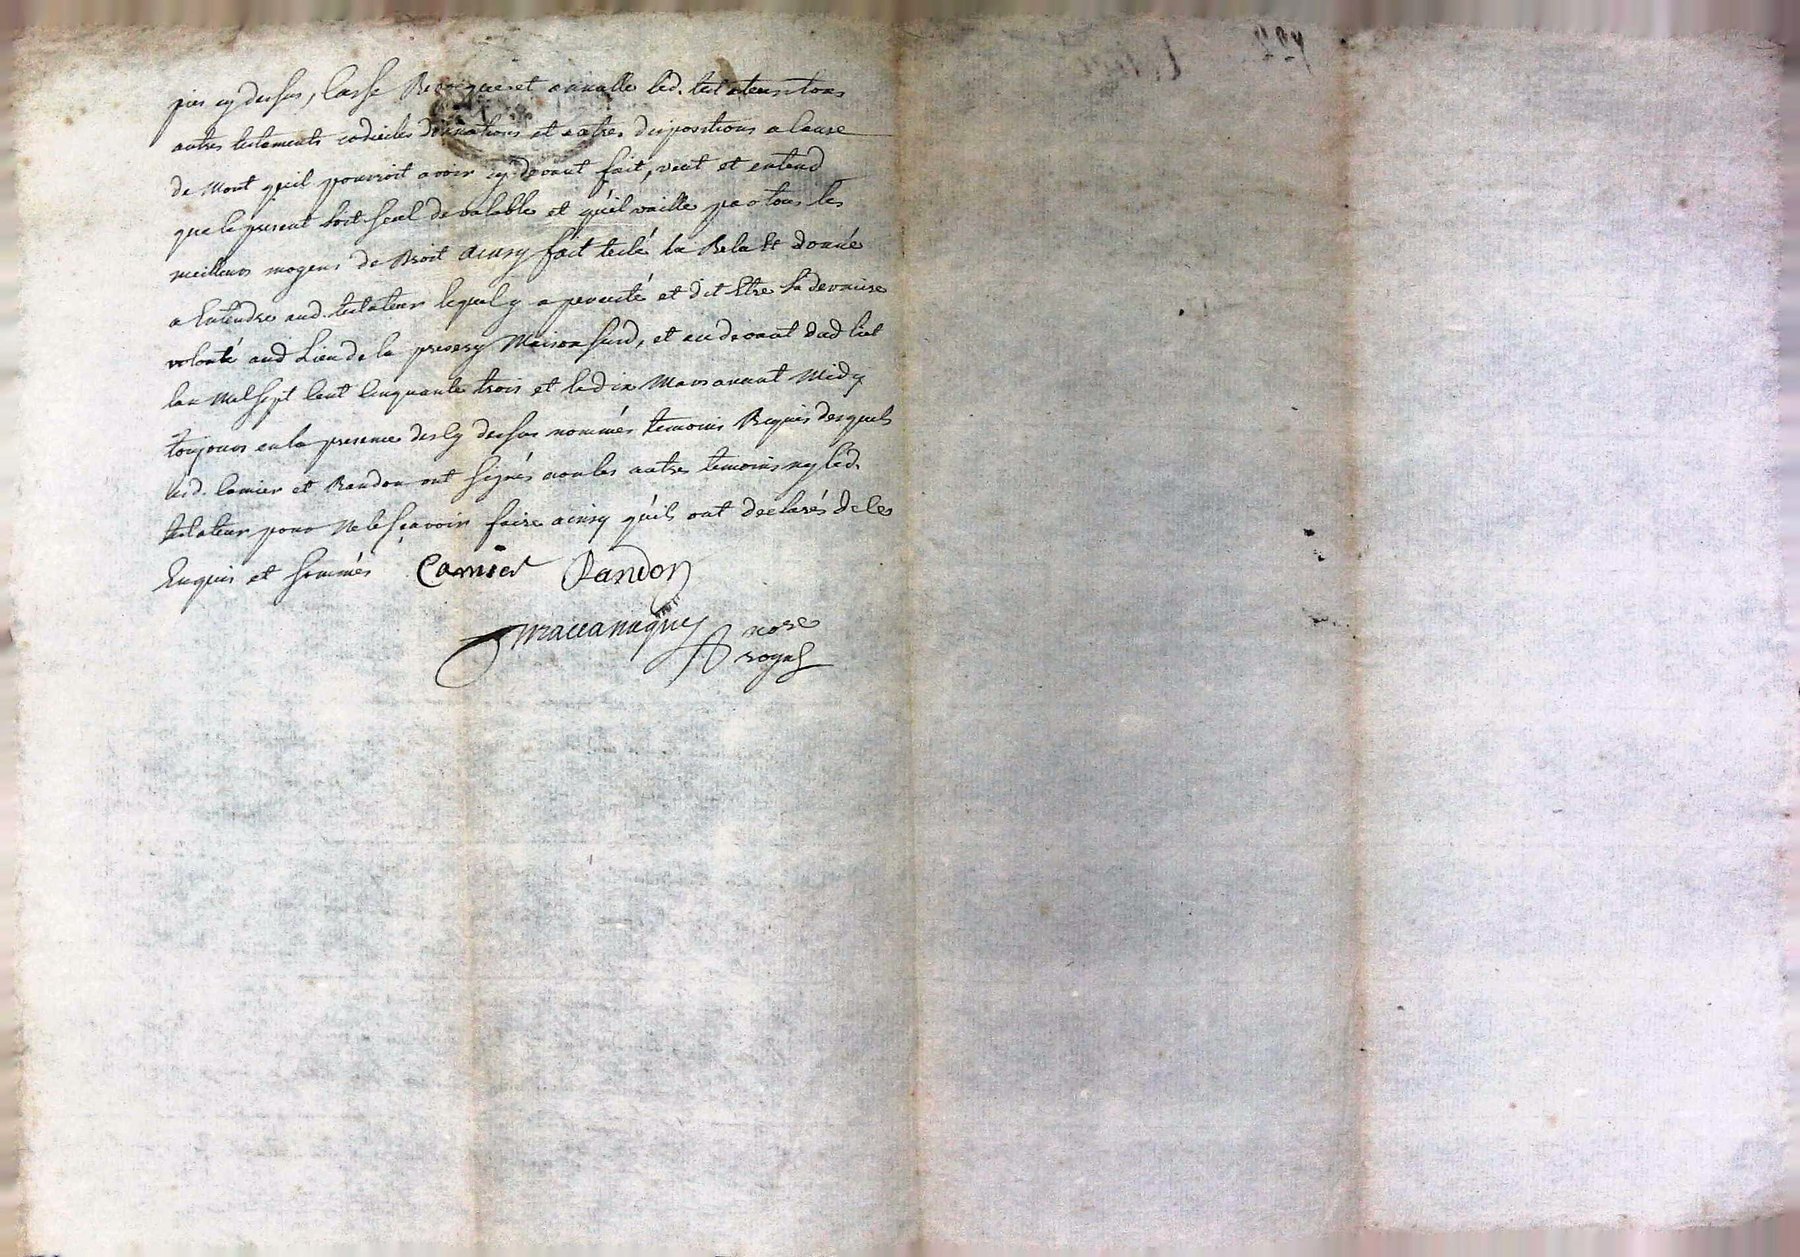 pies cy dessus, Casse Revoque et annulle led. testateur tous
autres testaments codicilles donnations et autres dispositions a Cause
de Mort quil pourroit avoir cy devant fait, veut et entend
que le present soit seul de valable et qu'il vaille par tous les
meilleurs moyens de Droit ainsy fait leu Rele et donné
a Entendre aud. testateur lequel y a percisté et dit Etre sa derniere
volonté aud Lieu de la Maison sud, et au devant dud lict
lan Mil sept Cent Cinquante trois et le dix Mars avant Midy
toujours en la presence des Cy dessus nommés temoins Requis desquels
lesd. Camier et Randon ont signés non les autres temoins ny led.
testateur pour Ne le sçavoir faire ainsy qu'ils ont declarés de ce
Enquis et sommés Camier Randon
nore
royal
722